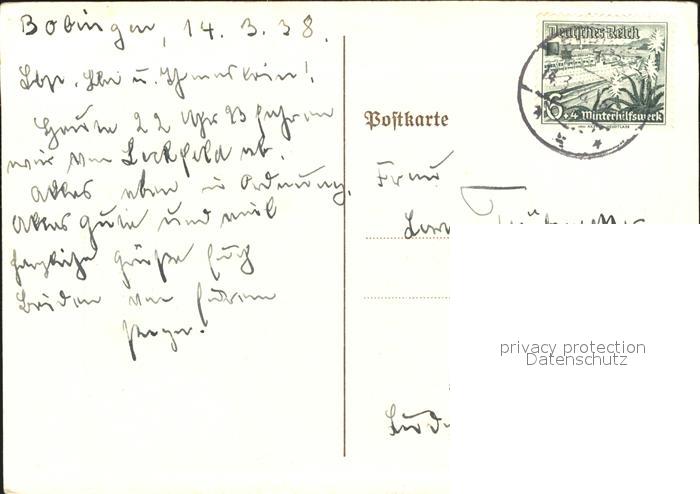 Bobingen, 14. 3. 38.
Heute 22 Uhr 23 fahren
wir von Lechfeld ab.
Alles eben in Ordnung.
Alles gute und viel
herzliche Grüße Euch
beiden von Eurem
Deutsches Reich
6+4 Winterhilfswerk
Postkarte
Frau
privacy protection
Datenschutz